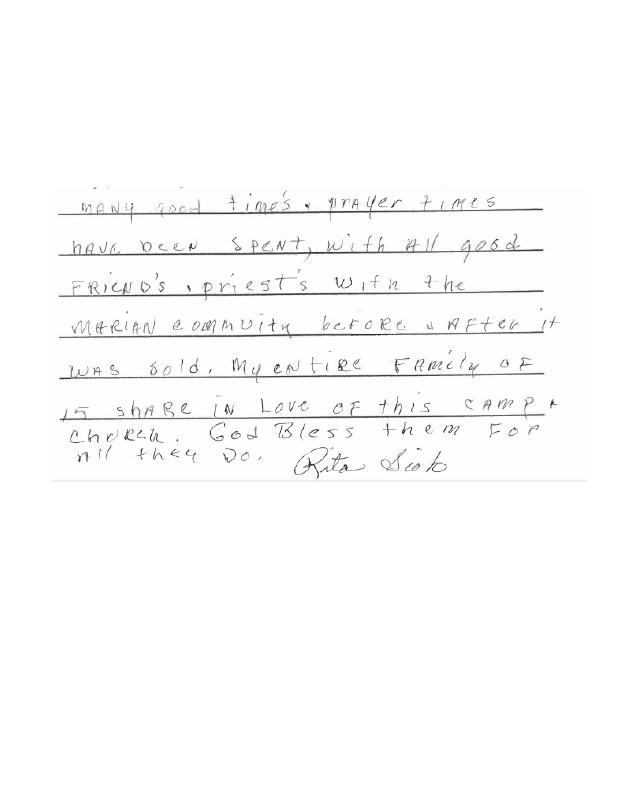 MANY good time's & prAyer times
hAVe been SpeNt, with All good
FRieND's & priest's with the
MARIAN commuity before & AFter it
WAS sold. My entire FAmily OF
15 shARe iN Love OF this CAMP &
ChURch. God Bless them For
All they Do. Rita